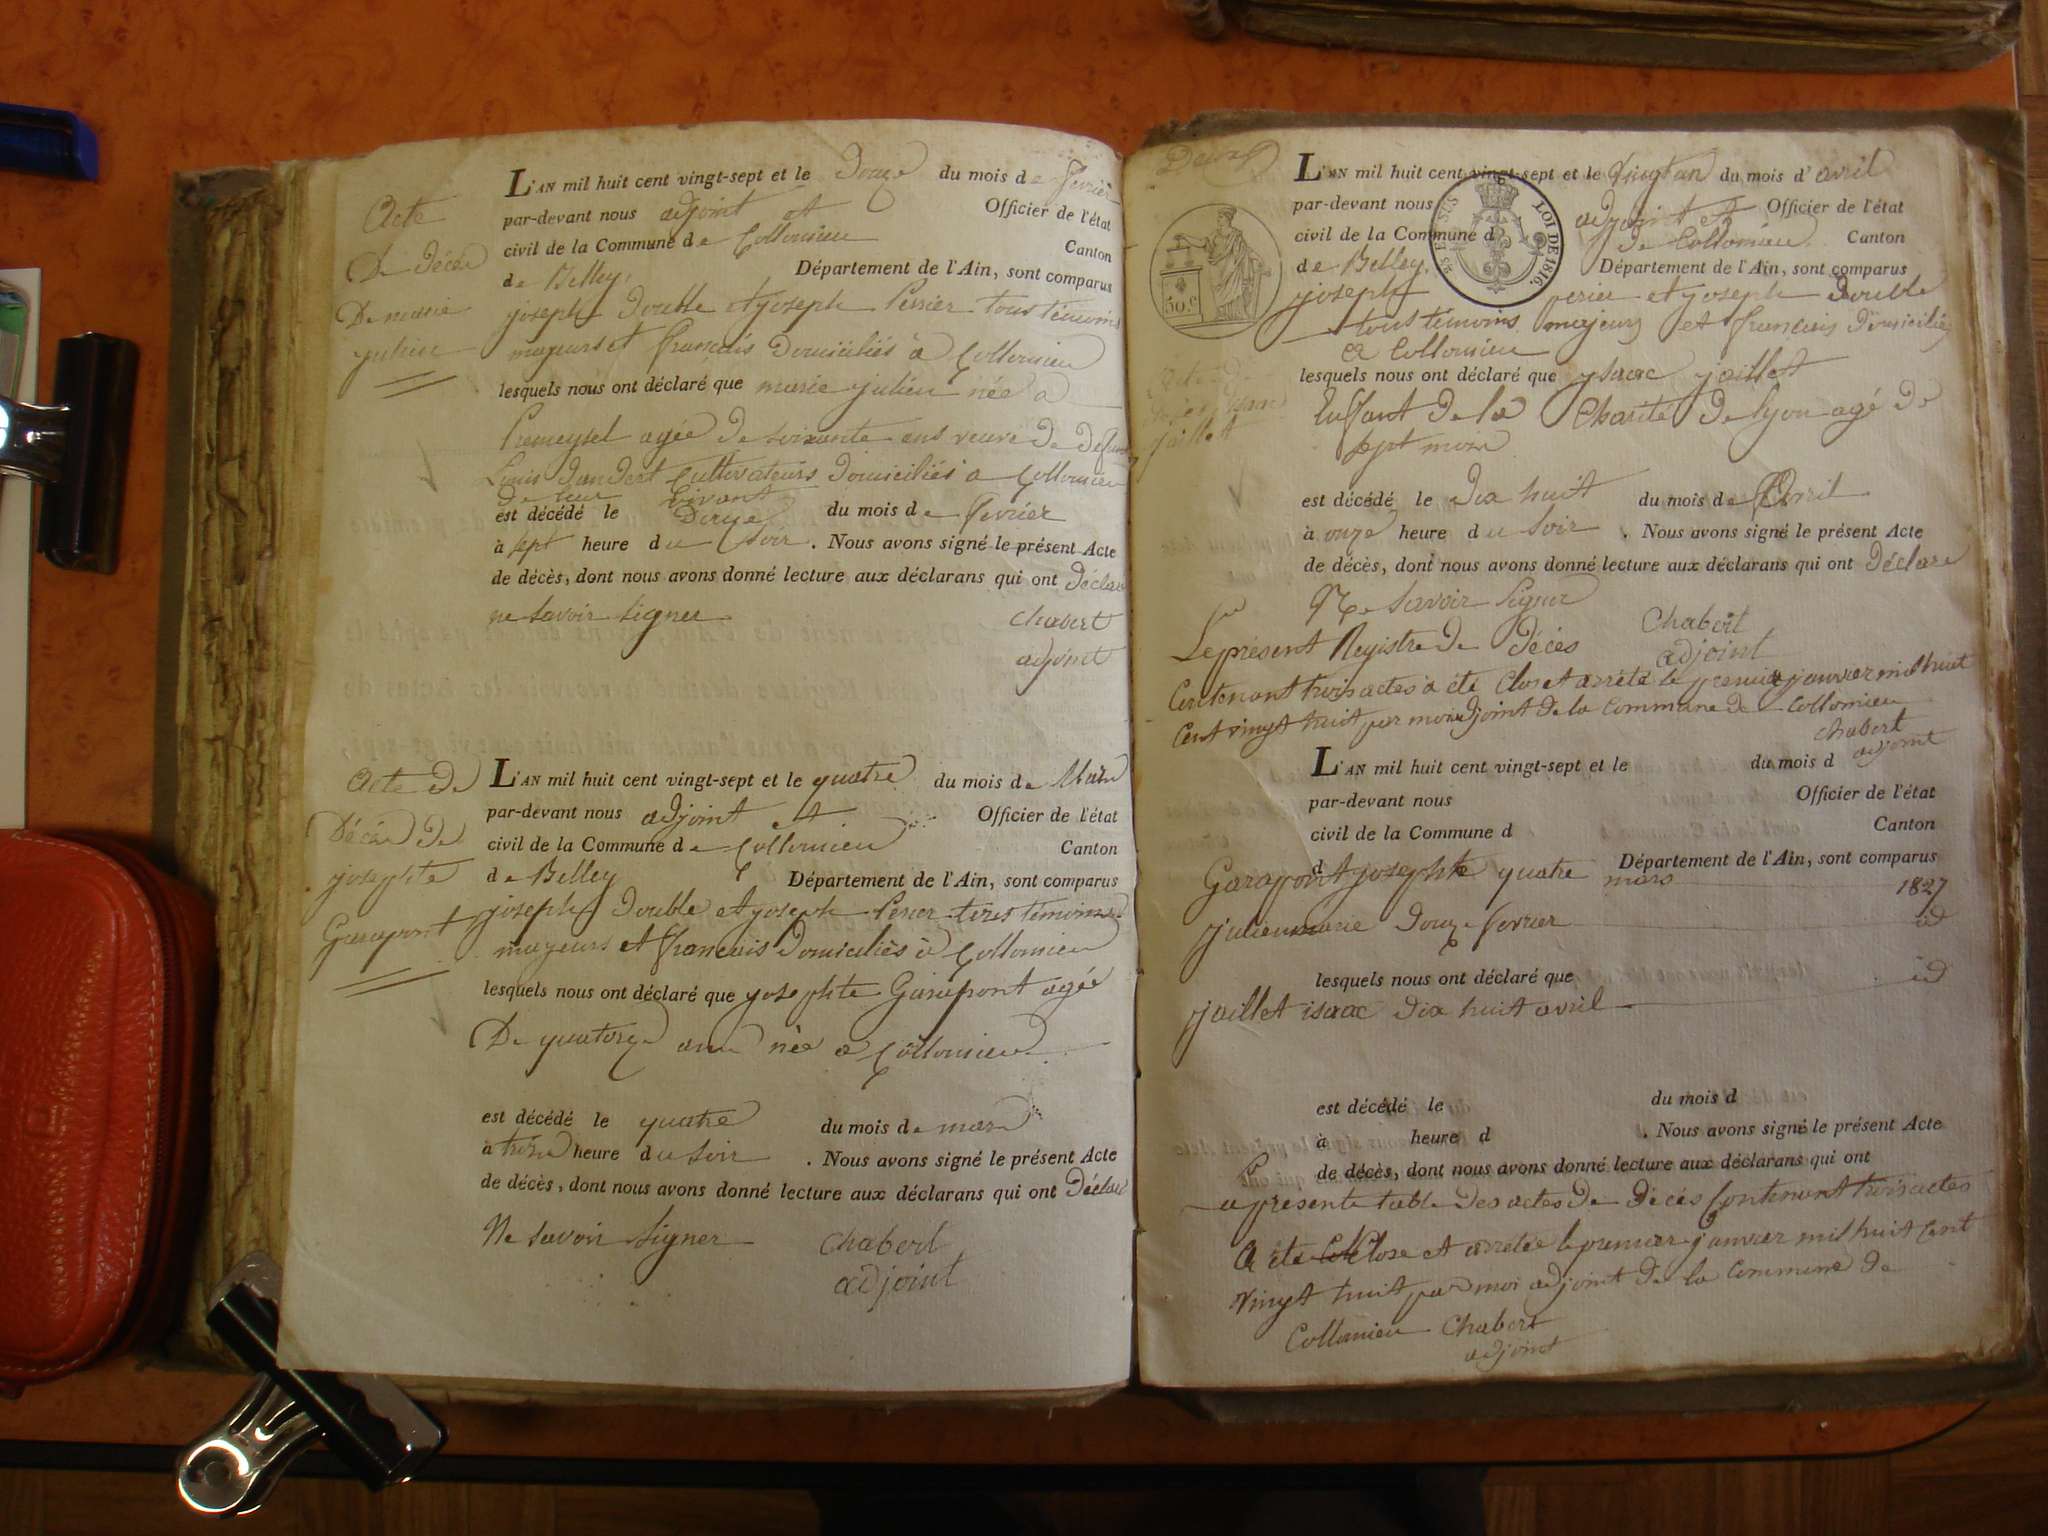 Acte
De Décée
De marie
julien
L'AN mil huit cent vingt-sept et le Douze du mois de fevrier
par-devant nous adjoint et Officier de l'état
civil de la Commune de Collomieu Canton
de Belley, Département de l'Ain, sont comparus
joseph Double et joseph Perrier tous témoins
majeurs et français Domiciliés a Collomieu
lesquels nous ont déclaré que marie julien née a
Premeysel agée De soixante ans veuve De Defunt
Louis Cultivateurs Domiciliés a Collomieu
De leur vivant
est décédé le Douze du mois de fevrier
à sept heure du soir. Nous avons signé le présent Acte
de décès, dont nous avons donné lecture aux déclarans qui ont Déclaré
ne savoir signer chabert
adjoint
Acte De
Décée De
josephte
Garapont
L'AN mil huit cent vingt-sept et le quatre du mois de Mars
par-devant nous adjoint et Officier de l'état
civil de la Commune de Collomieu Canton
de Belley Département de l'Ain, sont comparus
joseph Double et joseph Perier témoins
majeurs et francais Domiciliés à Collomieu
lesquels nous ont déclaré que josephte Garapont agée
De quatorze ans née a Collomieu
est décédé le quatre du mois de mars
à trois heure du soir. Nous avons signé le présent Acte
de décès, dont nous avons donné lecture aux déclarans qui ont Déclaré
Ne savoir signer chabert
adjoint
L'AN mil huit cent vingt-sept et le vingt un du mois d'avril
par-devant nous adjoint et Officier de l'état
civil de la Commune d de Collomieu Canton
de Belley, Département de l'Ain, sont comparus
LOI DE 1816.
50 c
joseph perier et joseph Double
tous témoins majeurs et francais Domiciliés
a Collomieu
jaillet
lesquels nous ont déclaré que ysaac jaillet
Enfant De la Charité De lyon agé De
sept mois
est décédé le Dix huit du mois de Avril
à onze heure du soir. Nous avons signé le présent Acte
de décès, dont nous avons donné lecture aux déclarans qui ont Déclaré
Ne savoir signer
Le présent Registre De Décés Chabert
adjoint
Contenant trois actes a été Clos et arrété le premier janvier mil huit
Cent vingt huit par moi adjoint De la Commune De Collomieu
chabert
adjoint
L'AN mil huit cent vingt-sept et le du mois d
par-devant nous Officier de l'état
civil de la Commune d Canton
d Département de l'Ain, sont comparus
Garapont josephte quatre mars 1827
julien marie Douze fevrier id
lesquels nous ont déclaré que
jaillet isaac Dix huit avril id
est décédé le du mois d
à heure d. Nous avons signé le présent Acte
de décès, dont nous avons donné lecture aux déclarans qui ont
La présente table Des actes De Décés Contenant trois actes
a été Close et arrétée le premier janvier mil huit Cent
Vingt huit par moi adjoint De la Commune De
Collomieu Chabert
adjoint